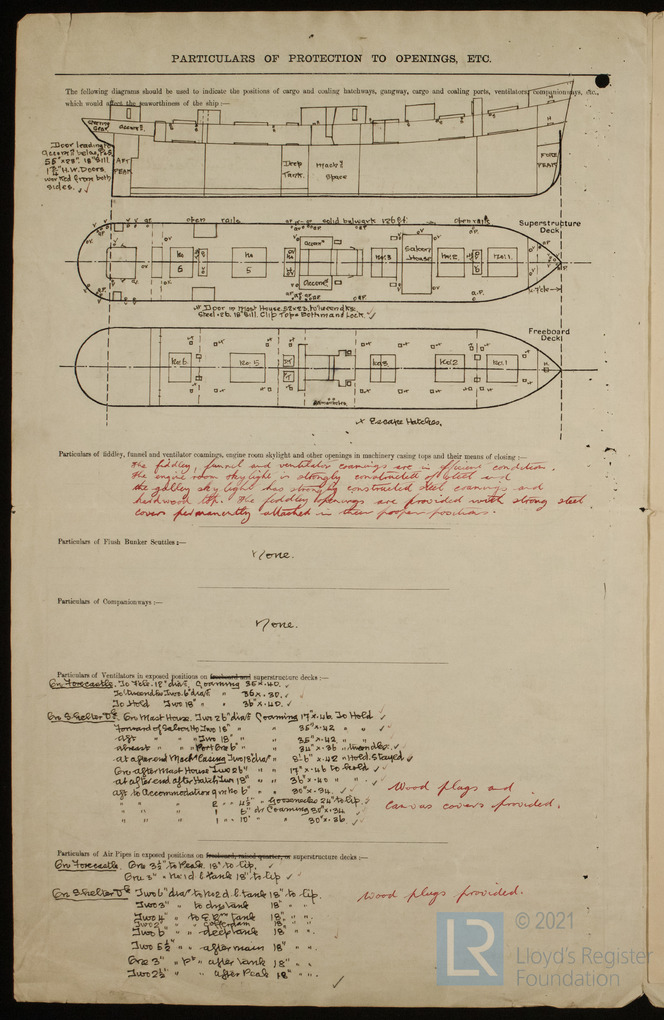 PARTICULARS OF PROTECTION TO OPENINGS, ETC.
The following diagrams should be used to indicate the positions of cargo and coaling hatchways, gangway, cargo and coaling ports, ventilators, companionways, etc.,
which would affect the seaworthiness of the ship :—
Steering Gear
Accomn
Door leading to
Accomn below, P&S
55" x 28". 18" Sill
1¾" H.W. Doors
worked from both
sides.
AFT PEAK
Deep Tank.
Machy Space
FORE PEAK
open rails
solid bulwark 126 ft.
open rails
Superstructure
Deck
No 6
No 5
Accomn
Accomn
No. 3
Saloon House
No. 2
No. 1
Door in Mast House 52 x 22
Steel .26. 18" Sill. Clip Top & Bottom and Lock.
Freeboard
Deck
No 6
No 5
No 3
No 2
No 1
x Escape Hatches.
Particulars of fiddley, funnel and ventilator coamings, engine room skylight and other openings in machinery casing tops and their means of closing :—
The fiddley, funnel and ventilator coamings are in efficient condition.
The engine room skylight is strongly constructed of steel and
the galley skylight has strongly constructed steel coamings and
hardwood top. The fiddley openings are provided with strong steel
covers permanently attached in their proper positions.
Particulars of Flush Bunker Scuttles :—
None.
Particulars of Companionways :—
None.
Particulars of Ventilators in exposed positions on freeboard and superstructure decks :—
On Forecastle. To Fore. 18" diar. Coaming 36" x .40.
To Tweendks Two 6" diar " 36 x .30.
To Hold Two 18" " " 36" x .40.
On Shelter Dk. On Mast House. Two 26" diar Coaming 17" x .46 To Hold
Forward of Saloon Ho Two 18" " " 35" x .42 " "
aft " " Two 18" " " 35" x .42 " "
abreast " " Port One 6" " " 34" x .36 " Tweendks.
at after end Machy Casing Two 18" diar " 8'-6" x .42 " Hold. Stayed
On after Mast House Two 26" " 17" x .46 to hold
at after end after Hatch Two 18" " 36" x .40 " "
aft to Accommodation 9 in No 6" " 30" x .34.
" " " 2 " 4½" " Goosenecks 24" to lip.
" " " 1 " 6" diar Coaming 30" x .34
" " " 1 " 10" " " 30" x .36
Wood plugs and
canvas covers provided.
Particulars of Air Pipes in exposed positions on freeboard, raised quarter, or superstructure decks :—
On Forecastle. One 3½" to Peak 18" to lip.
One 3" " No 1 d.b tank 18" to lip
On Shelter Dk Two 6" diar to No 2 d.b tank 18" to lip.
Two 3" " to dry tank 18" " "
Two 4" " to E.R. tank 18" " "
Two 2" " " Cofferdam 18" " "
Two 6" " " deep tank 18 " "
Two 5½" " " after main 18" " "
One 3" " Pt " after tank 18" " "
Two 2½" " " after Peak 18" " "
Wood plugs provided.
© 2021
LR
Lloyd's Register
Foundation